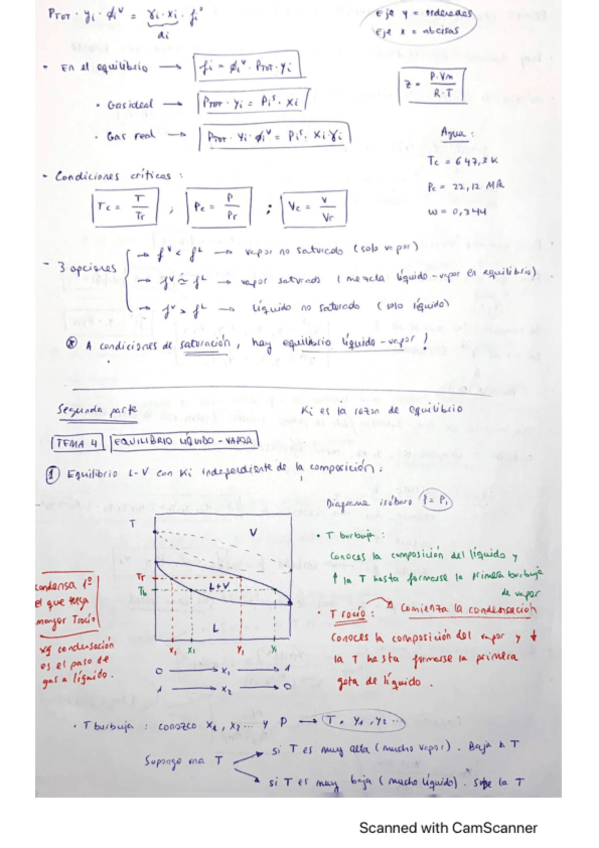 PTOT · yi · ϕiV = γi · xi · fi°
ai
Eje y = ordenadas
Eje x = abcisas
• En el equilibrio → fi = ϕiV · PTOT · yi
Z = P · Vm / R · T
• Gas ideal → PTOT · yi = PiS · xi
• Gas real → PTOT · yi · ϕiV = PiS · xi γi
Agua :
Tc = 647,3 K
Pc = 22,12 MPa
w = 0,344
- Condiciones críticas :
Tc = T / Tr ; Pc = P / Pr ; Vc = V / Vr
- 3 opciones
→ fV < fL → vapor no saturado (solo vapor)
→ fV ≃ fL → vapor saturado (mezcla líquido-vapor en equilibrio)
→ fV > fL → Líquido no saturado (solo líquido)
⊛ A condiciones de saturación, hay equilibrio líquido-vapor !
Segunda parte
Ki es la razon de equilibrio
TEMA 4 EQUILIBRIO LÍQUIDO-VAPOR
① Equilibrio L-V con Ki independiente de la composición :
Diagrama isóbaro P = P1
T
V
L+V
L
Tr
Tb
x1 x1 y1 y1
0 → x1 → 1
1 → x2 → 0
condensa 1º
el que tenga
mayor Trocío
condensación
es el paso de
gas a líquido.
• T burbuja :
Conoces la composición del líquido y
↑ la T hasta formarse la primera burbuja
de vapor
• T rocío : Comienza la condensación
Conoces la composición del vapor y ↓
la T hasta formarse la primera
gota de líquido.
• T burbuja : conozco x1, x2 ... y P → T, y1, y2 ...
Supongo una T
si T es muy alta (mucho vapor). Baja la T
si T es muy baja (mucho líquido). Sube la T
Scanned with CamScanner